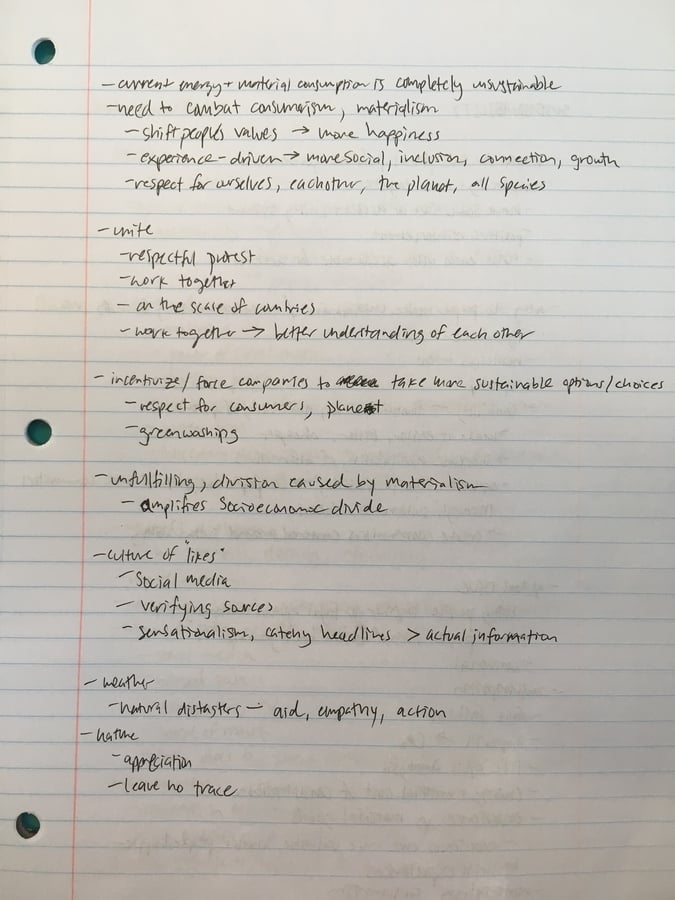 - current energy + material consumption is completely unsustainable
- need to combat consumerism, materialism
- shift people's values → more happiness
- experience-driven → more social, inclusion, connection, growth
- respect for ourselves, each other, the planet, all species
- unite
- respectful protest
- work together
- on the scale of countries
- work together → better understanding of each other
- incentivize/force companies to take more sustainable options/choices
- respect for consumers, planet
- greenwashing
- unfulfilling, division caused by materialism
- amplifies socioeconomic divide
- culture of "likes"
- social media
- verifying sources
- sensationalism, catchy headlines > actual information
- weather
- natural distasters - aid, empathy, action
- nature
- appreciation
- leave no trace